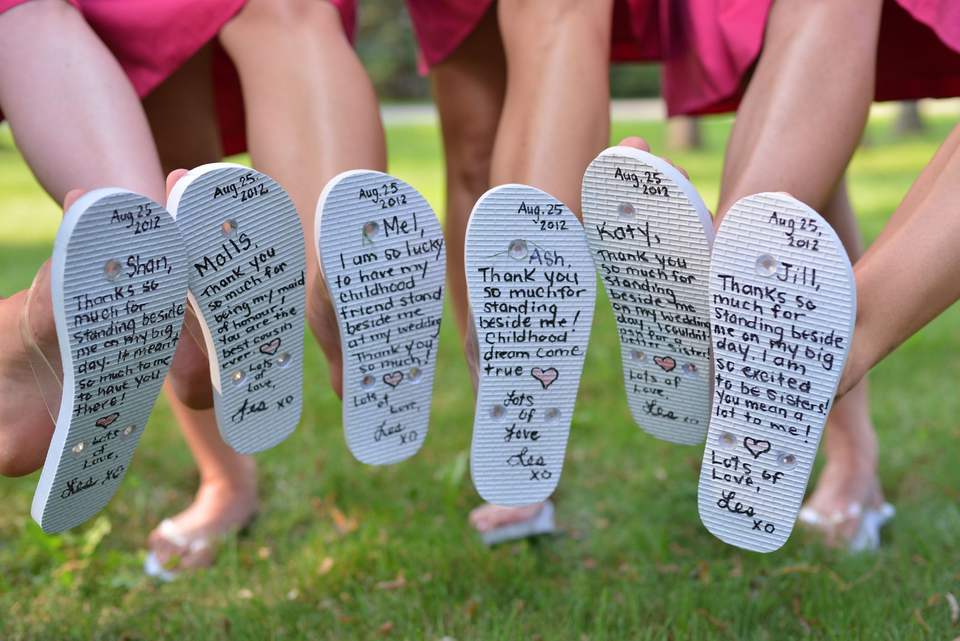 Aug. 25
2012
Shan,
Thanks so
much for
standing beside
me on my big
day. It meant
so much to me
to have you
there!
Lots
of
Love,
Les xo
Aug. 25,
2012
Molls,
Thank you
so much for
being my maid
of honour!
You are the
best cousin
ever.
Lots
of
Love,
Les xo
Aug. 25
2012
Mel,
I am so lucky
to have my
childhood
friend stand
beside me
at my wedding
Thank you
so much!
Lots of
Love,
Les
xo
Aug. 25
2012
Ash,
Thank you
so much for
standing
beside me!
Childhood
dream come
true
Lots
of
Love
Les
xo
Aug. 25
2012
Katy,
Thank you
so much for
standing
beside me
on my wedding
day I couldn't
better sister
Lots of
Love,
Les xo
Aug. 25,
2012
Jill,
Thanks so
much for
standing beside
me on my big
day I am
so excited
to be sisters!
You mean a
lot to me!
Lots of
Love,
Les
xo